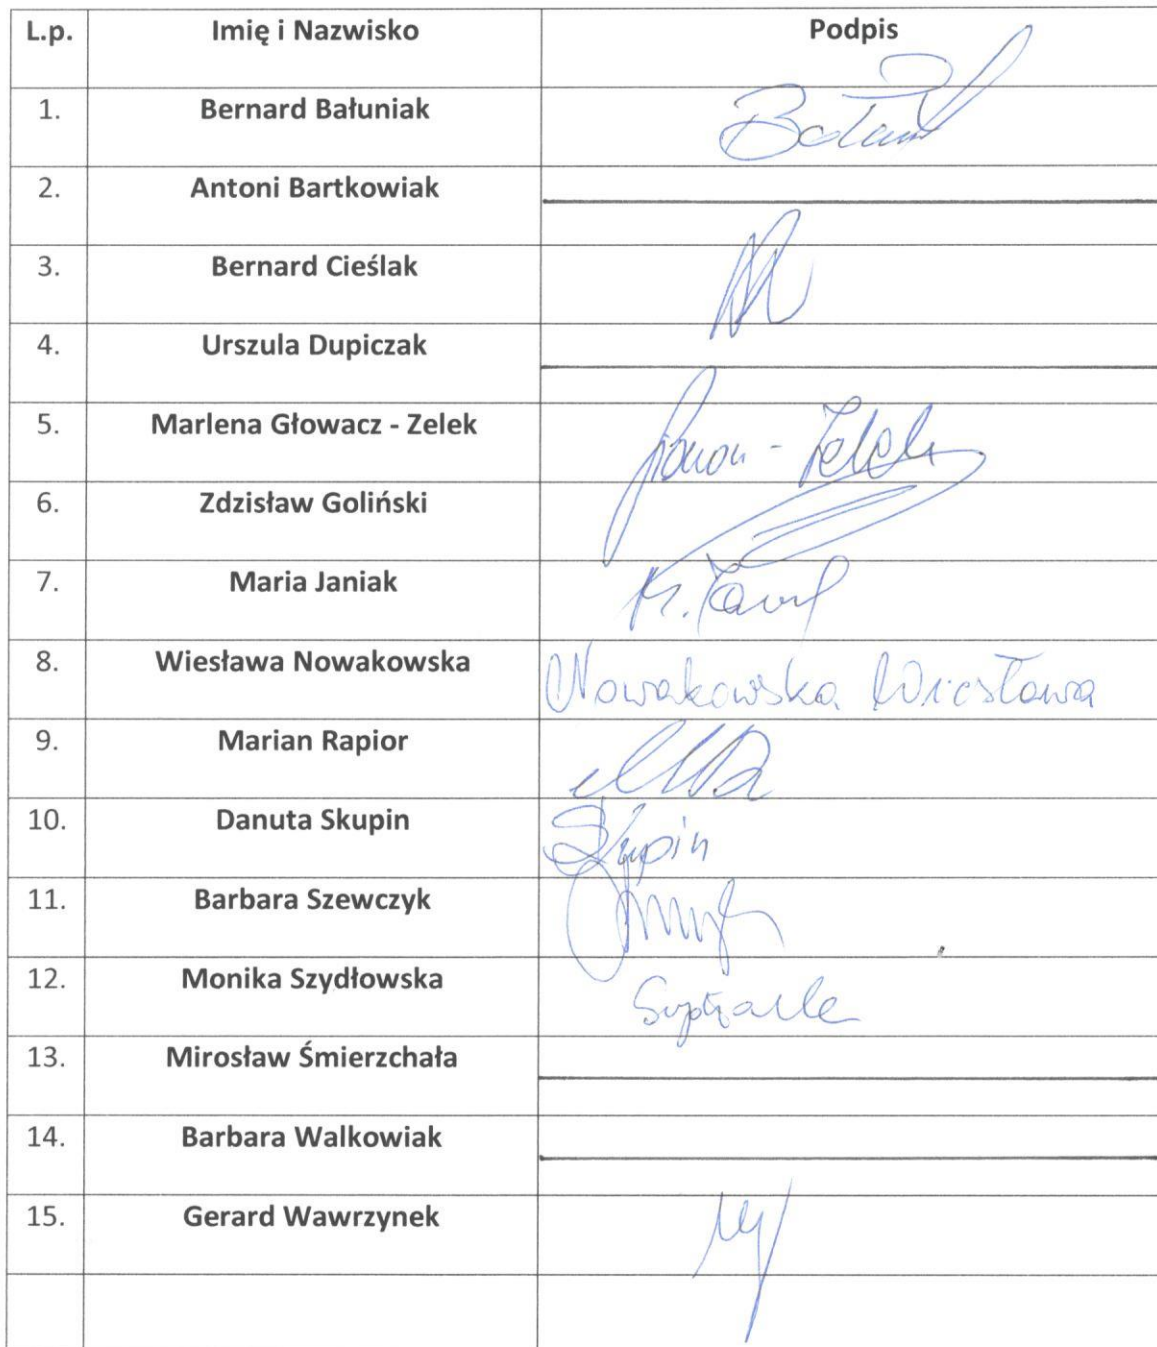 L.p. Imię i Nazwisko Podpis
1. Bernard Bałuniak
2. Antoni Bartkowiak
3. Bernard Cieślak
4. Urszula Dupiczak
5. Marlena Głowacz - Zelek
6. Zdzisław Goliński
7. Maria Janiak
8. Wiesława Nowakowska Nowakowska Wiesława
9. Marian Rapior
10. Danuta Skupin Skupin
11. Barbara Szewczyk
12. Monika Szydłowska
13. Mirosław Śmierzchała
14. Barbara Walkowiak
15. Gerard Wawrzynek